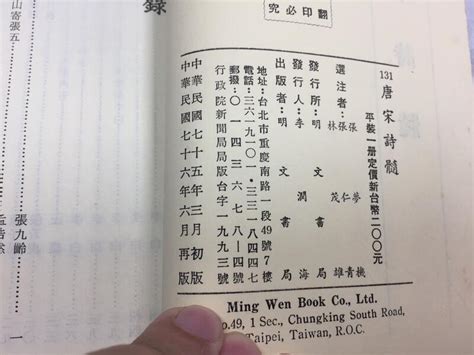 翻印必究
131 唐宋詩髓
平裝一册定價新台幣二〇〇元
選注者:張夢機
張仁青
林茂雄
發行所:明文書局
發行人:李潤海
出版者:明文書局
地址:台北市重慶南路一段49號7樓
電話:三六一九一〇一·三三一八四四七
郵撥:〇一四三六七八—四號
行政院新聞局局版台字一九九三號
中華民國七十五年三月初版
中華民國七十六年六月再版
Ming Wen Book Co., Ltd.
No.49, 1 Sec., Chungking South Road,
Taipei, Taiwan, R.O.C.
錄
張九齡
山寄張五
孟浩然
一